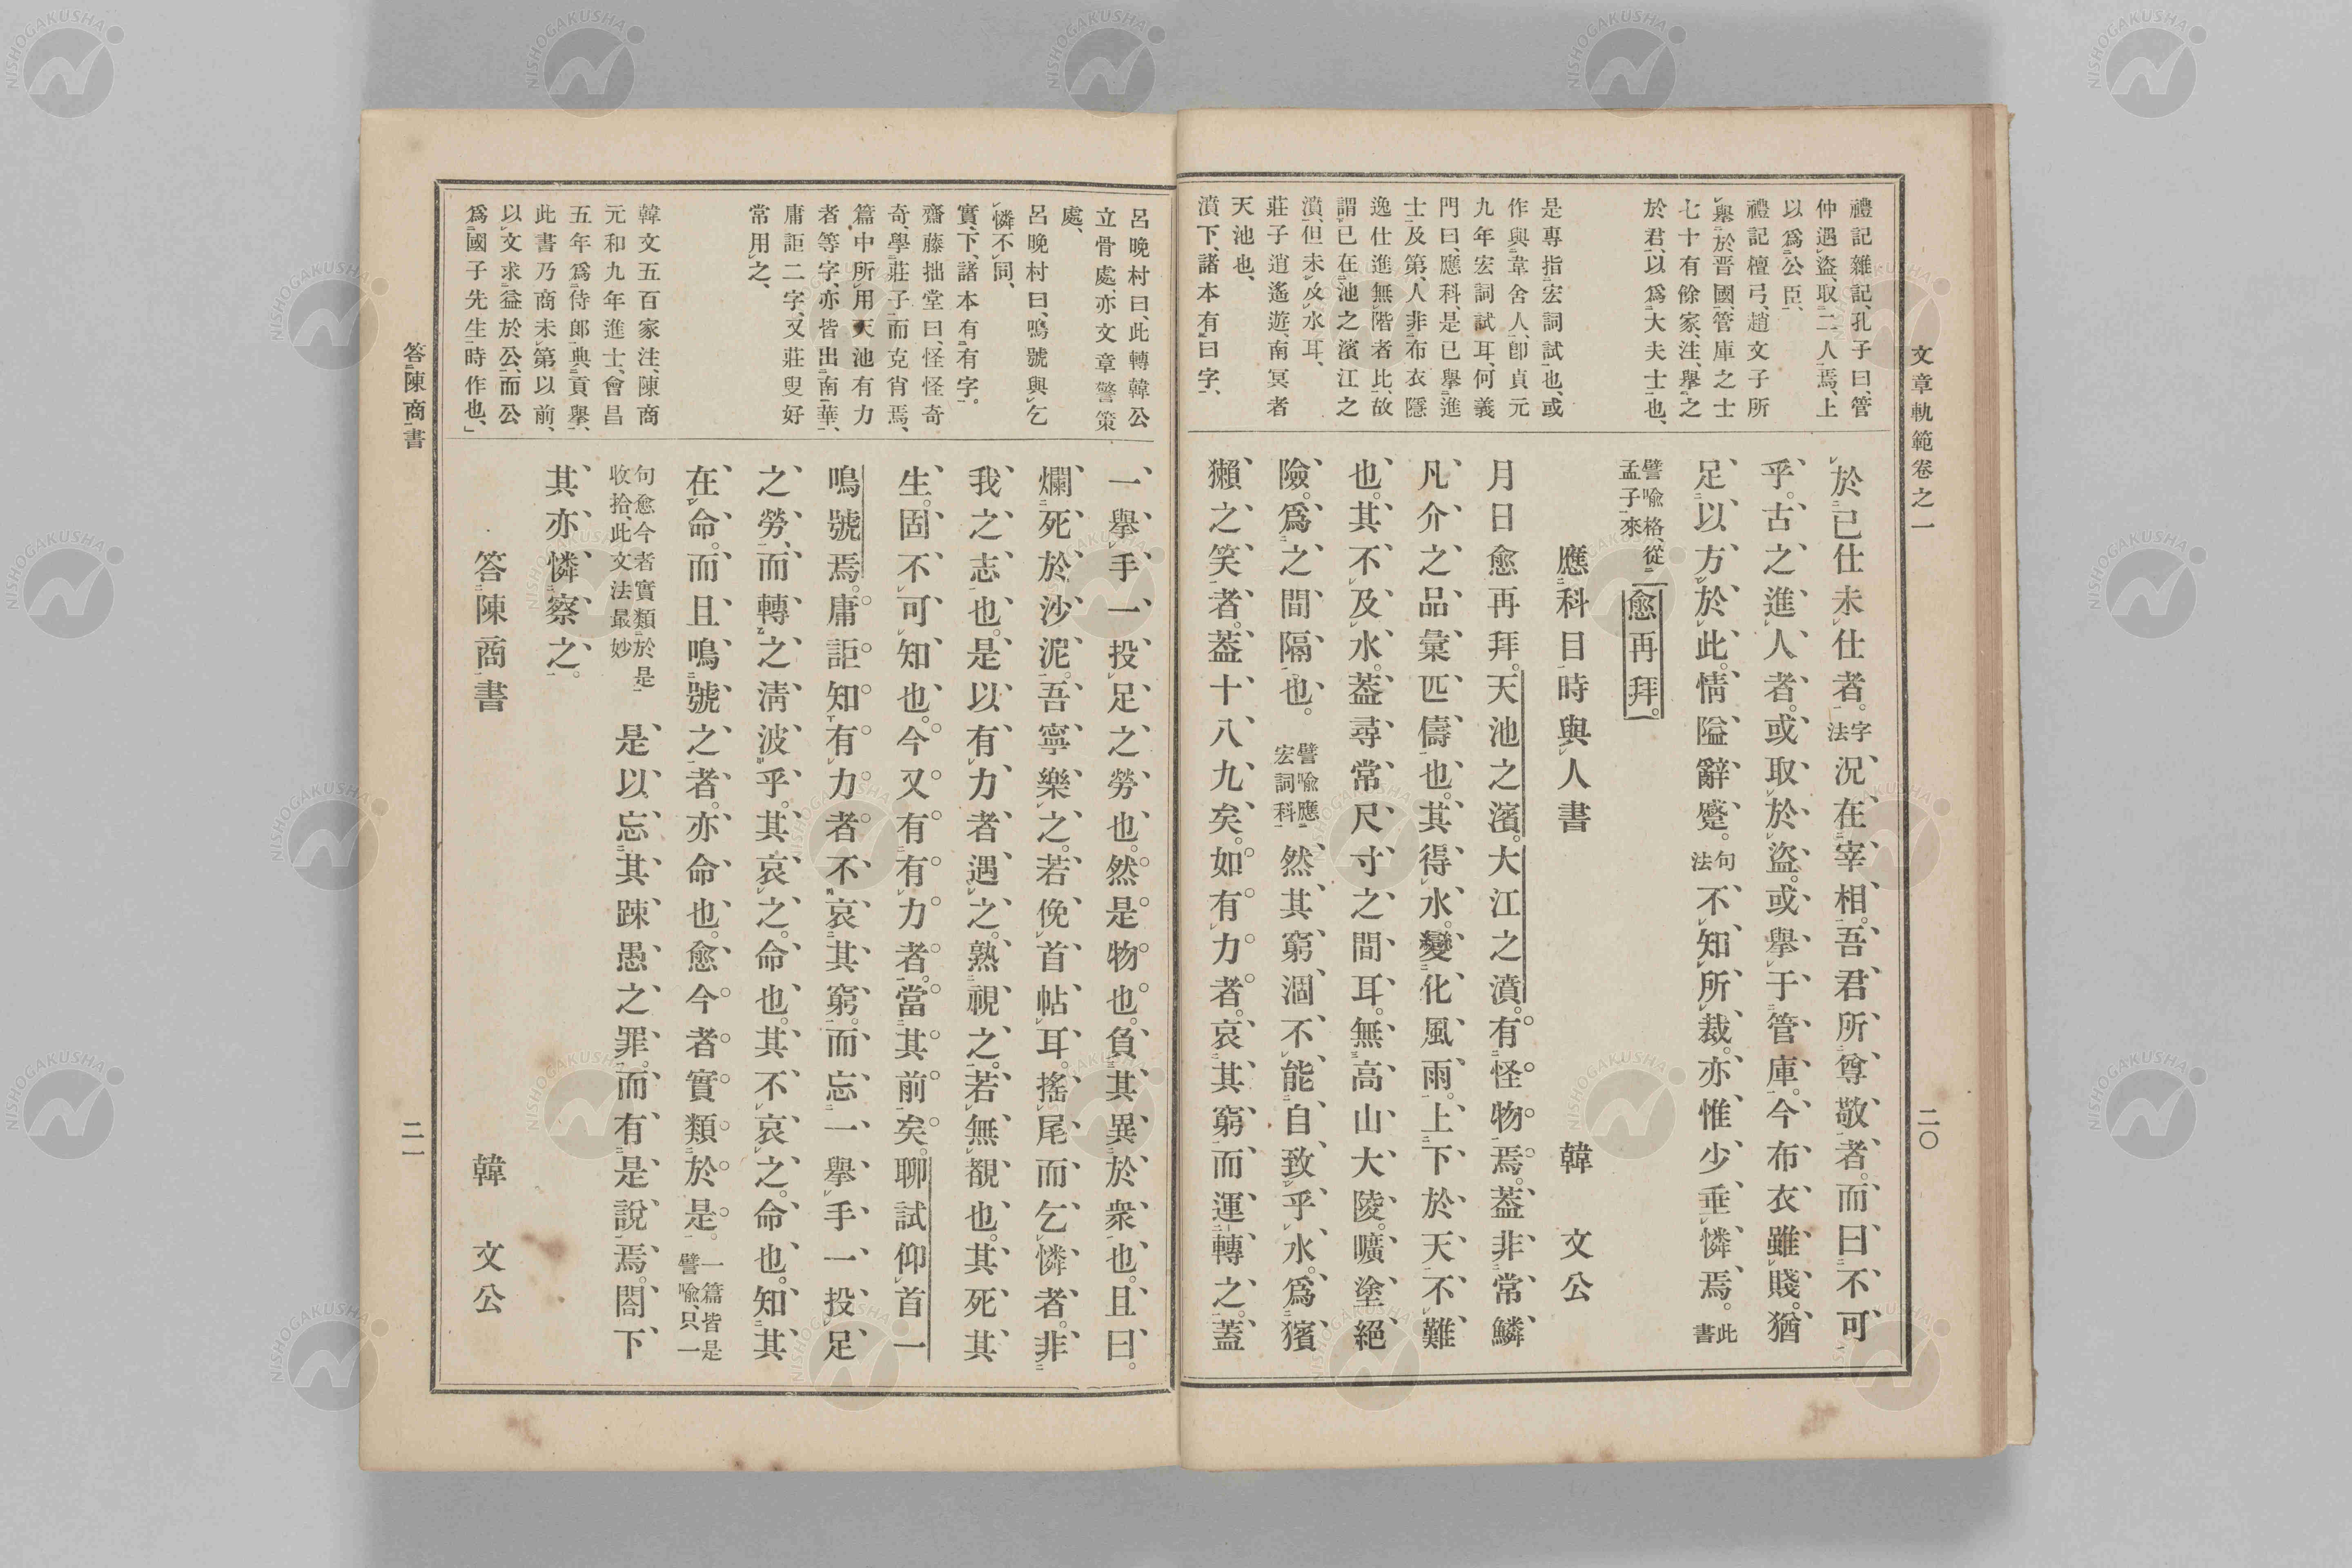 文章軌範卷之一
二〇
禮記雜記、孔子曰、管
仲遇盜、取二人焉、上
以爲公臣、
禮記檀弓、趙文子所
擧於晋國管庫之士
七十有餘家、注、擧之
於君、以爲大夫士也、
是專指宏詞試也、或
作與韋舍人、卽貞元
九年宏詞試耳、何義
門曰、應科、是已擧進
士及第、人非布衣隱
逸仕進無階者比、故
謂已在池之濱江之
濆、但未及水耳、
莊子逍遙遊、南冥者
天池也、
濆下、諸本有曰字、
於已仕未仕者。字法況在宰相。吾君所尊敬者。而曰不可
乎。古之進人者。或取於盜。或擧于管庫。今布衣雖賤。猶
足以方於此。情隘辭蹙。句法不知所裁。亦惟少垂憐焉。此書
譬喩格、從孟子來愈再拜。
應科目時與人書 韓文公
月日愈再拜。天池之濱。大江之濆。有怪物焉。蓋非常鱗
凡介之品彙匹儔也。其得水。變化風雨。上下於天不難
也。其不及水。蓋尋常尺寸之間耳。無高山大陵。曠塗絕
險。爲之間隔也。譬喩應宏詞科然其窮涸不能自致乎水。爲獱
獺之笑者。蓋十八九矣。如有力者。哀其窮而運轉之。蓋
呂晚村曰、此轉韓公
立骨處、亦文章警策
處、
呂晚村曰、鳴號與乞
憐不同、
實下、諸本有有字。
齋藤拙堂曰、怪怪奇
奇、學莊子而克肖焉、
篇中所用天池有力
者等字、亦皆出南華、
庸詎二字、又莊叟好
常用之、
韓文五百家注、陳商
元和九年進士、會昌
五年爲侍郞典貢擧、
此書乃商未第以前、
以文求益於公、而公
爲國子先生時作也、
一擧手一投足之勞也。然是物也。負其異於衆也。且曰。
爛死於沙泥。吾寧樂之。若俛首帖耳。搖尾而乞憐者。非
我之志也。是以有力者遇之。熟視之。若無覩也。其死其
生。固不可知也。今又有有力者。當其前矣。聊試仰首一
鳴號焉。庸詎知有力者不哀其窮。而忘一擧手一投足
之勞。而轉之淸波乎。其哀之。命也。其不哀之。命也。知其
在命。而且鳴號之者。亦命也。愈今者實類於是。一篇皆是譬喩、只一
句愈今者實類於是收拾、此文法最妙是以忘其踈愚之罪。而有是說焉。閤下
其亦憐察之。
答陳商書 韓文公
答陳商書
二一